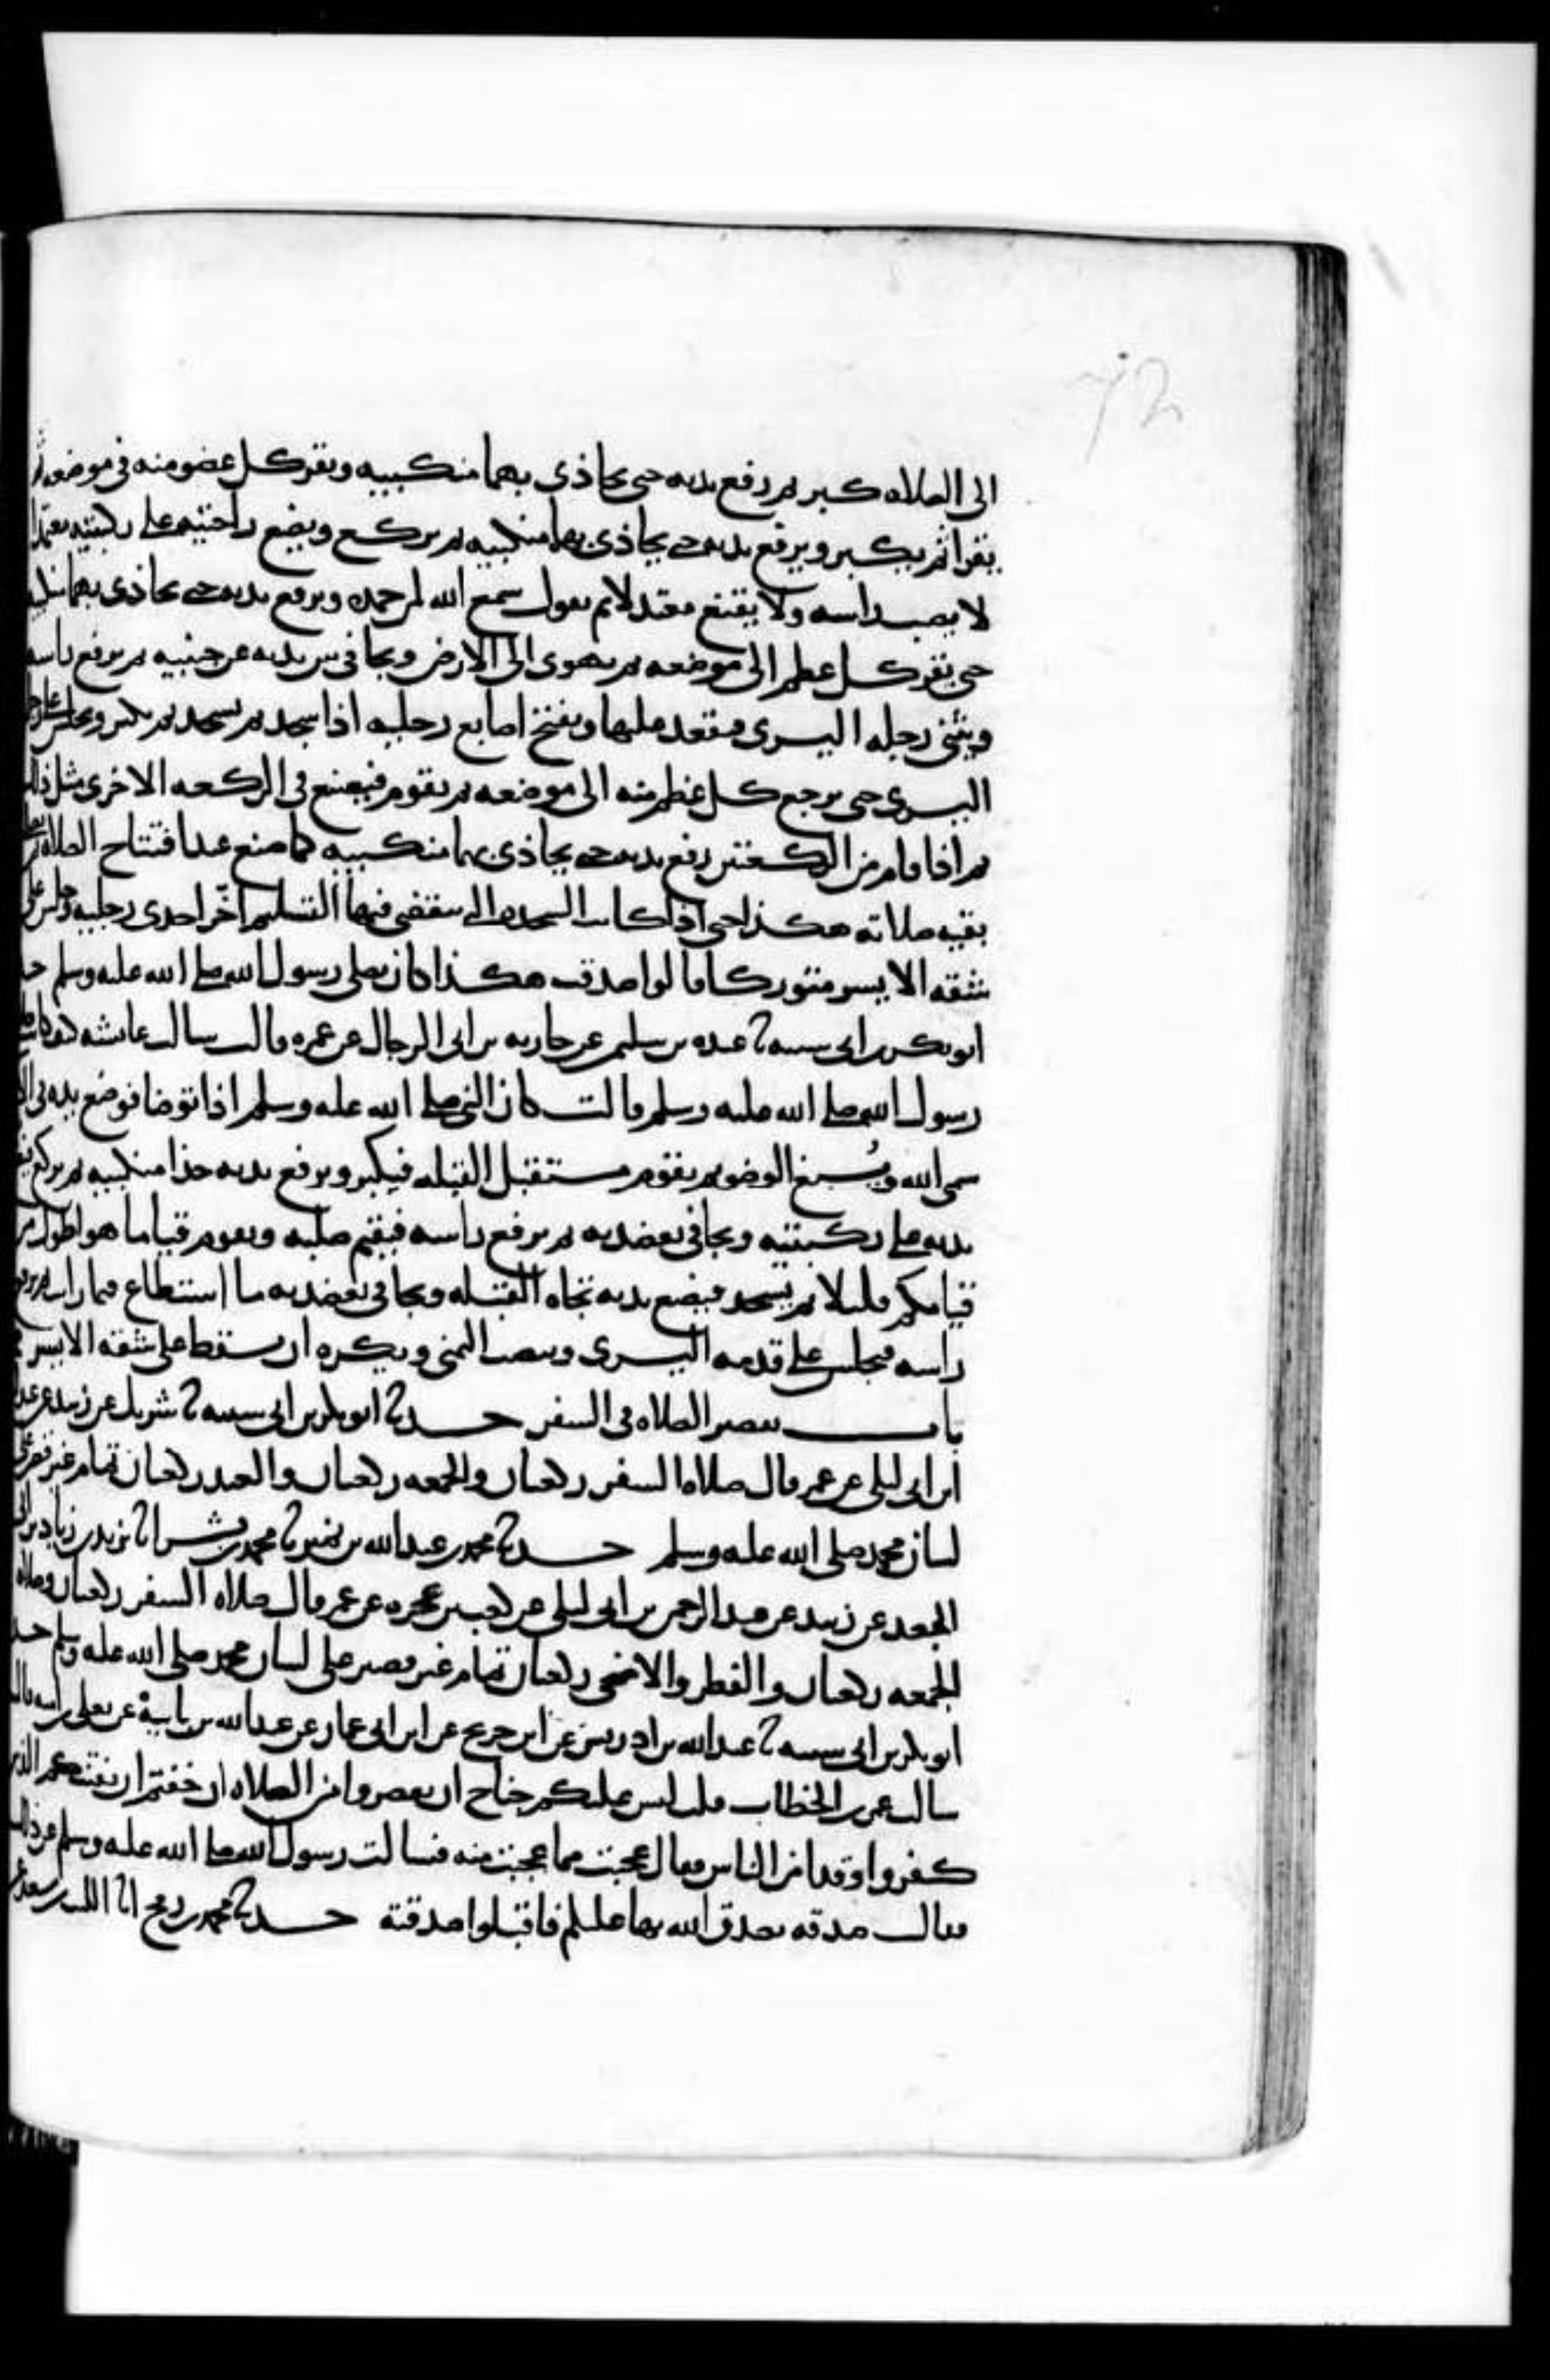 الى الصلاه كبر ثم رفع يديه حتى يحاذي بهما منكبيه ويقر كل عضو منه في موضعه ثم
يقرا ثم يكبر ويرفع يديه حتى يحاذي بهما منكبيه ثم يركع ويضع راحتيه على ركبتيه معتمدا
لا يصب راسه ولا يقنع معتدلا ثم يقول سمع الله لمن حمده ويرفع يديه حتى يحاذي بهما منكبيه
حتى يقر كل عظم الى موضعه ثم يهوي الى الارض ويجافي بين يديه عن جنبيه ثم يرفع راسه
ويثني رجله اليسرى فيقعد عليها ويفتخ اصابع رجليه اذا سجد ثم يسجد ثم يكبر ويجلس على رجله
اليسرى حتى يرجع كل عظم منه الى موضعه ثم يقوم فيصنع في الركعه الاخرى مثل ذلك
ثم اذا قام من الركعتين رفع يديه حتى يحاذي بهما منكبيه كما صنع عند افتتاح الصلاه ثم يصلي
بقيه صلاته هكذا حتى اذا كانت السجده التي ينقضي فيها التسليم اخّر احدى رجليه وجلس على
شقه الايسر متوركا قالوا صدقت هكذا كان يصلي رسول الله صلى الله عليه وسلم حد
ابو بكر بن ابي شيبه ثنا عبده بن سليمن عن حارثه بن ابي الرجال عن عمره قالت سالت عائشه كيف كانت صلاه
رسول الله صلى الله عليه وسلم قالت كان النبي صلى الله عليه وسلم اذا توضا فوضع يده في الانا
سمى الله ويُسبغ الوضو ثم يقوم مستقبل القبله فيكبر ويرفع يديه حذا منكبيه ثم يركع فيضع
يديه على ركبتيه ويجافي بعضديه ثم يرفع راسه فيقيم صلبه ويقوم قياما هو اطول من
قيامكم قليلا ثم يسجد فيضع يديه تجاه القبله ويجافي بعضديه ما استطاع فيما رايت ثم يرفع
راسه فيجلس على قدمه اليسرى وينصب اليمنى ويكره ان يسقط على شقه الايسر
باب تقصير الصلاه في السفر حدثنا ابو بكر بن ابي شيبه ثنا شريك عن زبيد عن عبد الرحمن
بن ابي ليلى عن عمر قال صلاه السفر ركعتان والجمعه ركعتان والعيد ركعتان تمام غير قصر على
لسان محمد صلى الله عليه وسلم حدثنا محمد بن عبد الله بن نمير ثنا محمد بن بشر انا يزيد بن زياد بن ابي
الجعد عن زبيد عن عبد الرحمن بن ابي ليلى عن كعب بن عجره عن عمر قال صلاه السفر ركعتان وصلاه
الجمعه ركعتان والفطر والاضحى ركعتان تمام غير قصر على لسان محمد صلى الله عليه وسلم حدثنا
ابو بكر بن ابي شيبه ثنا عبد الله بن ادريس عن ابن جريج عن ابن ابي عمار عن عبد الله بن بابيه عن يعلى بن اميه قال
سالت عمر بن الخطاب قلت ليس عليكم جناح ان تقصروا من الصلاه ان خفتم ان يفتنكم الذين
كفروا وقد امن الناس فقال عجبت مما عجبت منه فسالت رسول الله صلى الله عليه وسلم عن ذلك
فقال صدقه تصدق الله بها عليكم فاقبلوا صدقته حدثنا محمد بن رمح انا الليث بن سعد عن